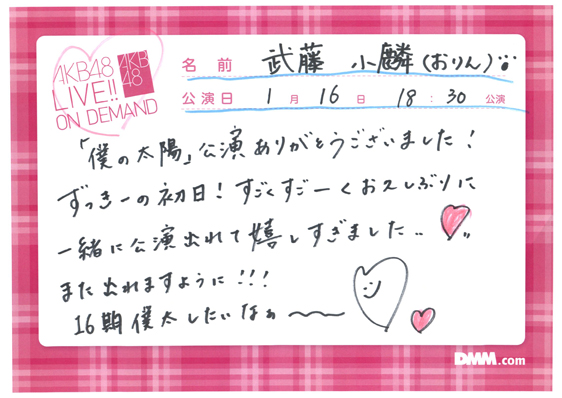 AKB48
LIVE!!
ON DEMAND
AKB
48
名前 武藤 小麟(おりん)
公演日 1月16日 18:30公演
「僕の太陽」公演ありがとうございました!
ずっきーの初日! すごくすごーくお久しぶりに
一緒に公演出れて嬉しすぎました..
また出れますように!!!
16期僕太したいなぁ〜〜
DMM.com